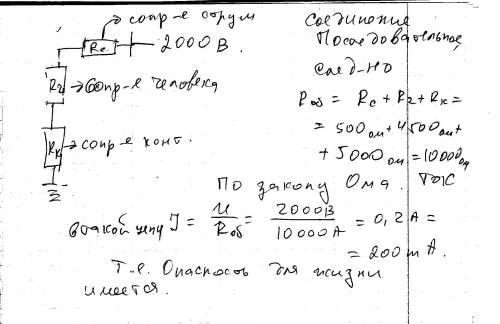 сопр-е струм
Rc
2000 В.
Rч
Сопр-е человека
Rк
сопр-е конт.
Соединение
Последовательное,
след-но
Rоб = Rc + Rч + Rк =
= 500 ом + 4500 ом +
+ 5000 ом = 10000 ом
По закону Ома. ток
в такой цепи J = U/Rоб = 2000В/10000А = 0,2 А =
= 200 mA.
Т.е. Опасность для жизни
имеется.